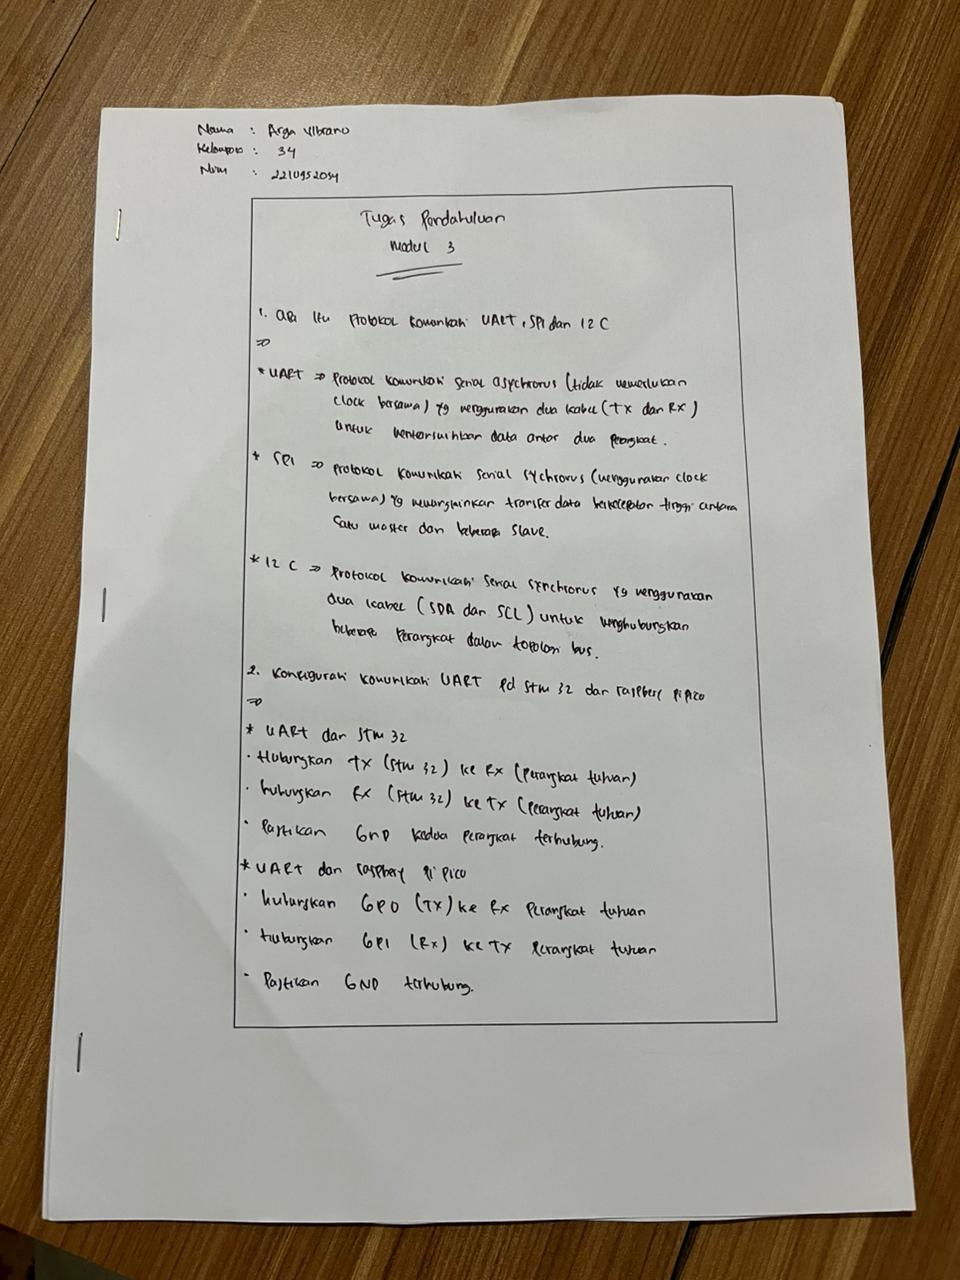 Nama : Arga Vibrano
Kelompok : 34
Nim :
Tugas Pendahuluan
Modul 3
1. apa itu Protokol komunikasi UART, SPI dan I2C
⇒
* UART ⇒ Protokol komunikasi serial asychronus (tidak memerlukan
clock bersama) yg menggunakan dua kabel (TX dan RX)
untuk mentransmisikan data antar dua perangkat.
* SPI ⇒ Protokol komunikasi serial sychronus (menggunakan clock
bersama) yg memungkinkan transfer data berkecepatan tinggi antara
satu master dan beberapa slave.
* I2C ⇒ Protokol komunikasi serial synchronus yg menggunakan
dua kabel (SDA dan SCL) untuk menghubungkan
beberapa perangkat dalam topologi bus.
2. Konfigurasi komunikasi UART pd STM 32 dan raspbery pi pico
⇒
* UART dan STM 32
· Hubungkan TX (STM 32) ke RX (Perangkat tujuan)
· hubungkan RX (STM 32) ke TX (Perangkat tujuan)
· Pastikan GND kedua perangkat terhubung.
* UART dan raspbery pi pico
· hubungkan GP0 (TX) ke RX Perangkat tujuan
· Hubungkan GP1 (RX) ke TX Perangkat tujuan
- Pastikan GND terhubung.